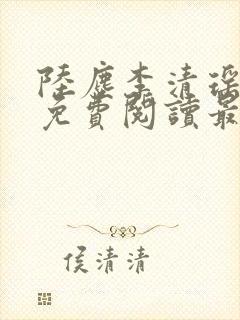 陸塵李清瑤
免費閱讀最
侯清清